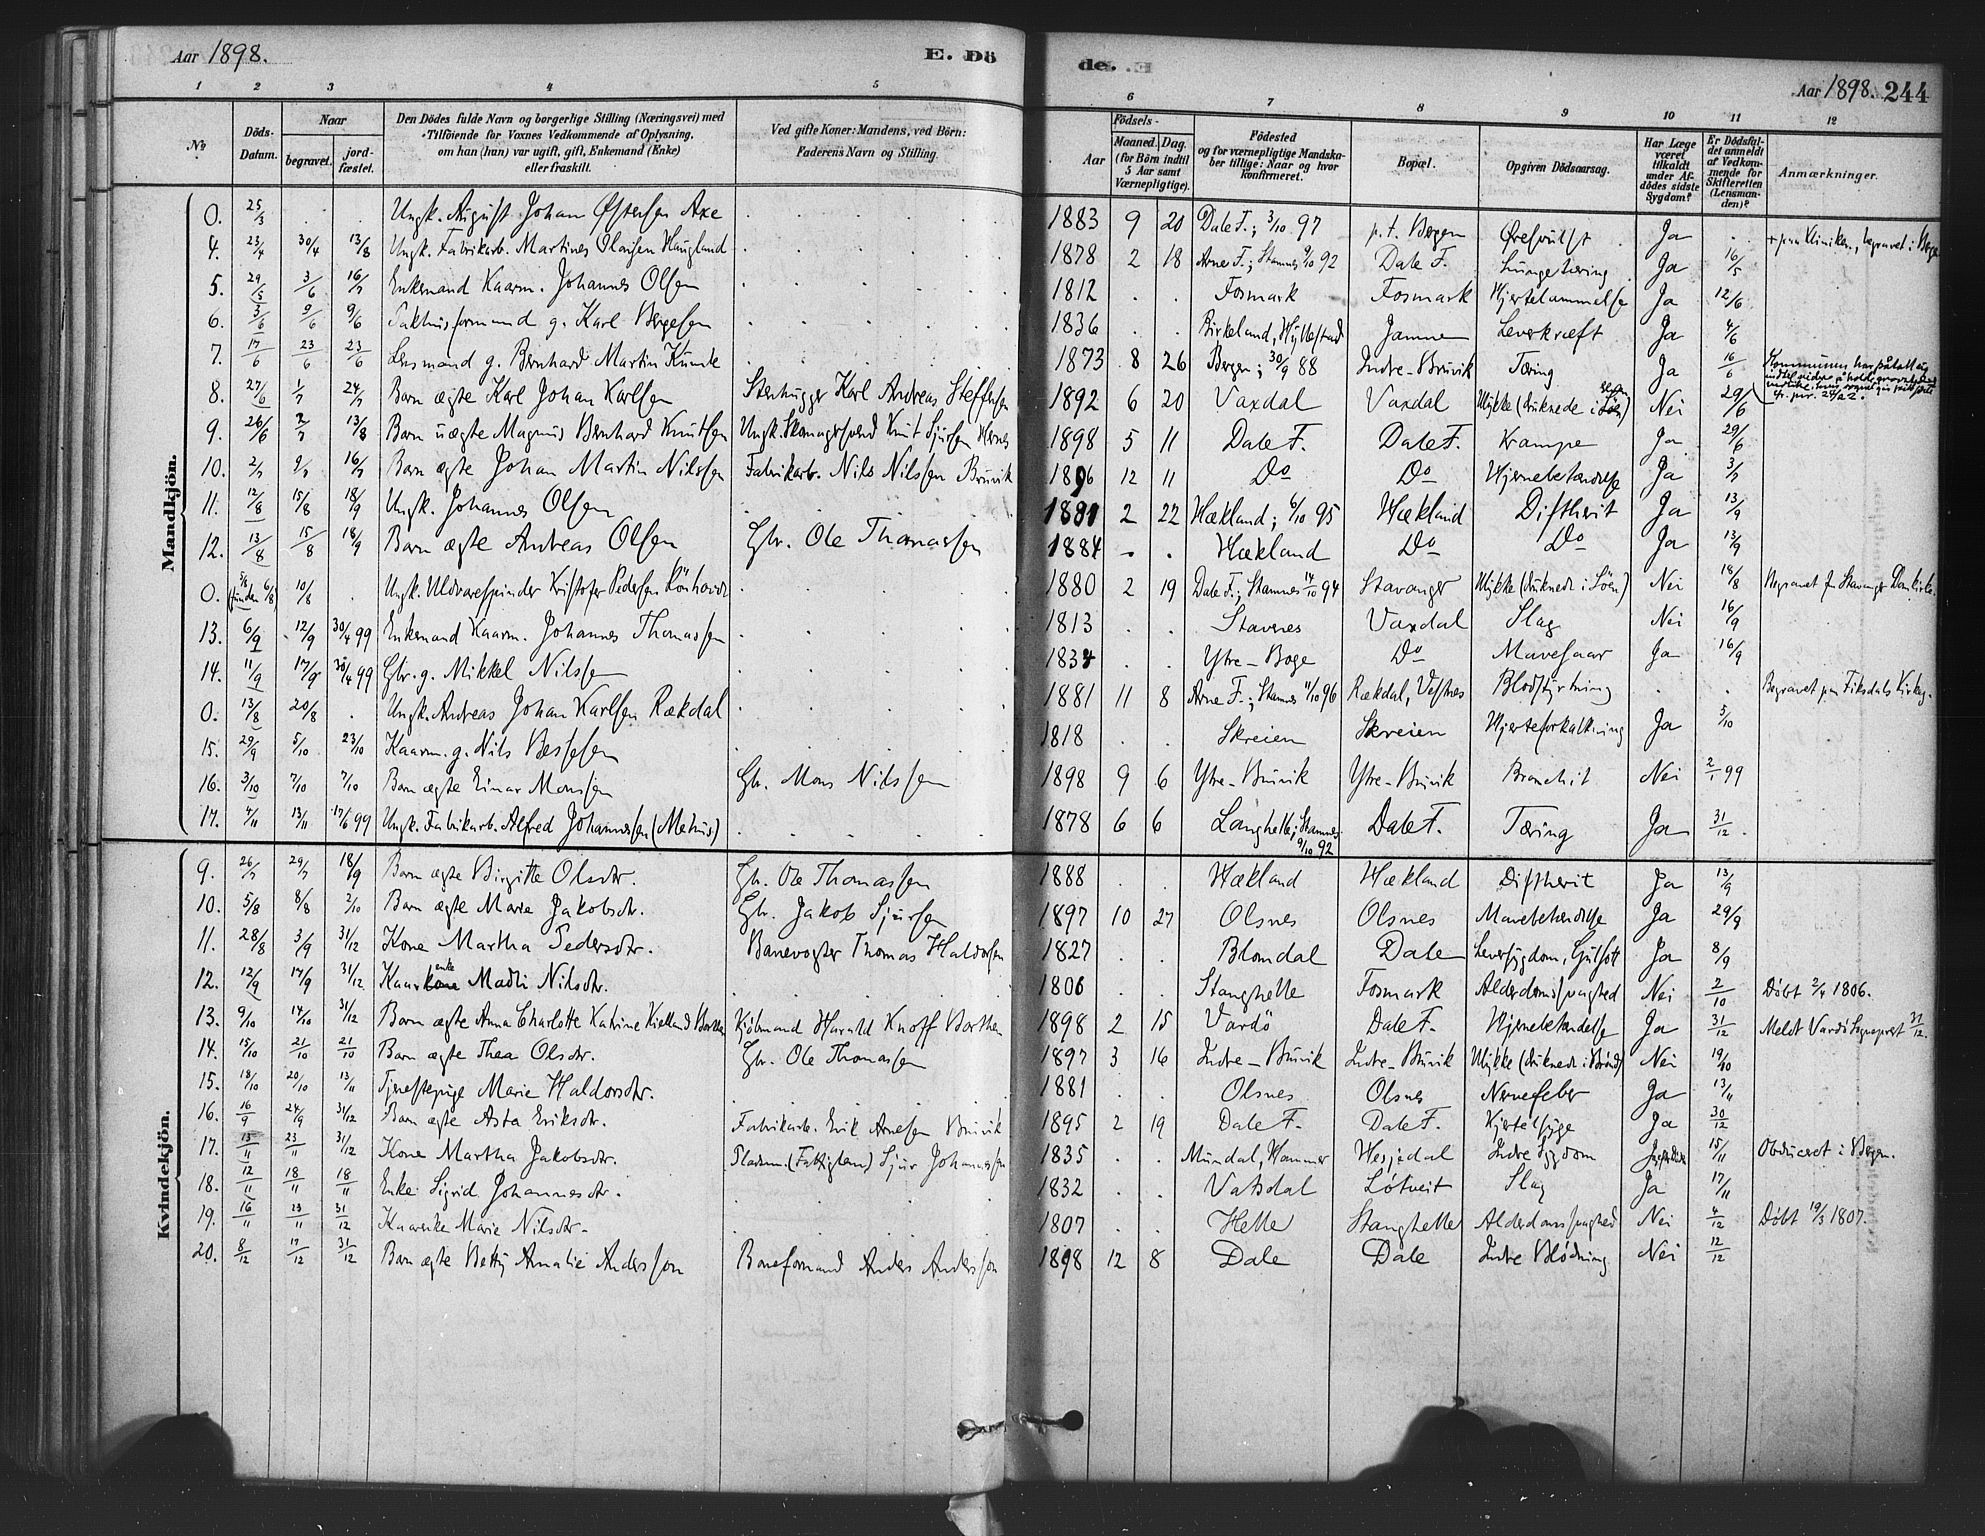 Aar 1898. E. Dö
de. Aar 1898. 244
1 2 3 4 5
6 7 8 9 10 11 12
No
Döds-Datum.
Naar
begravet.
jordfæstet.
Den Dödes fulde Navn og borgerlige Stilling (Næringsvei) med
Tilföiende for Voxnes Vedkommende af Oplysning,
om han (hun) var ugift, gift, Enkemand (Enke)
eller fraskilt.
Ved gifte Koner: Mandens, ved Börn:
Faderens Navn og Stilling.
Födsels-
Aar
Maaned. Dag.
(for Börn indtil
5 Aar samt
Værnepligtige).
Födested
og for værnepligtige Mandskaber tillige: Naar og hvor
konfirmeret.
Bopæl.
Opgiven Dödsaarsag.
Har Læge
været
tilkaldt
under Afdödes sidste
Sygdom?
Er Dödsfaldet anmeldt
af Vedkommende for
Skifteretten
(Lensmanden)?
Anmærkninger.
Mandkjön.
0. 25/3 . . Ungk. August Johan Østensen Axe . 1883 9 20 Dale F.; 3/10 97 p.t. Bergen Ja . begravet i
4. 23/4 30/4 13/8 Ungk. Fabrikarb. Martines Olaisen Haugland . 1878 2 18 Arne F.; Stamnes 9/10 92 Dale F. Lungetæring Ja 16/5
5. 29/5 3/6 16/7 Enkemand Kaarm. Johannes Olsen . 1812 . . Fosmark Fosmark Hjertelammelse Ja 12/6
6. 3/6 9/6 9/6 Pakhusformand g. Karl Bergesen . 1836 . . Birkeland, Hyllestad Jamne Leverkræft Ja 4/6
7. 17/6 23/6 23/6 Lensmand g. Bernhard Martin Kunde . 1873 8 26 Bergen; 30/9 88 Indre-Bruvik Tæring Ja 16/6 Kommunen har påtatt sig
8. 27/6 1/7 24/7 Barn ægte Karl Johan Karlsen Stenhugger Karl Andreas Steffensen 1892 6 20 Vaxdal Vaxdal Ulykke (druknede i Søen) Nei 29/6
9. 26/6 2/7 13/8 Barn uægte Magnus Bernhard Knutsen Ungk. Skomagersvend Knut Sjursen Hernes 1898 5 11 Dale F. Dale F. Krampe Ja 29/6
10. 2/7 9/7 16/7 Barn ægte Johan Martin Nilssen Fabrikarb. Nils Nilssen Bruvik 1896 12 11 Do Do Hjernebetændelse Ja 3/7
11. 12/8 15/8 18/9 Ungk. Johannes Olsen 1881 2 22 Hækland; 6/10 95 Hækland Diftherit Ja 13/9
12. 13/8 15/8 18/9 Barn ægte Andreas Olsen Gbr. Ole Thomassen 1884 . . Hækland Do Do Ja 13/9
0. 5/8 (funden 6/8) 10/8 . Ungk. Uldvarespinder Kristofer Pedersen . 1880 2 19 Dale F.; Stamnes 14/10 94 Stavanger Ulykke (druknede i Söen) Nei 18/8 Begravet fr Stavanger Domkirke.
13. 6/9 12/9 30/4 99 Enkemand Kaarm. Johannes Thomassen . 1813 . . Stavnes Vaxdal Slag Nei 16/9
14. 11/9 17/9 30/4 99 Gbr. g. Mikkel Nilssen . 1834 . . Ytre-Boge Do Mavesaar Ja 16/9
0. 13/8 20/8 . Ungk. Andreas Johan Karlsen Rækdal . 1881 11 8 Arne F.; Stamnes 11/10 96 Rækdal, Vestnes Blodstyrtning . . Begravet paa Fiksdals Kirkeg.
15. 29/9 5/10 23/10 Kaarm. g. Nils Bessesen . 1818 . . Skreien Skreien Hjerteforkalkning Ja 5/10
16. 3/10 7/10 7/10 Barn ægte Einar Monssen Gbr. Mons Nilssen 1898 9 6 Ytre-Bruvik Ytre-Bruvik Bronchit Nei 2/1 99
17. 4/11 13/11 17/6 99 Ungk. Fabrikarb. Alfred Johannessen (Mehus) . 1878 6 6 Langhelle; Stamnes 9/10 92 Dale F. Tæring Ja 31/12
Kvindekjön.
9. 26/7 29/7 18/9 Barn ægte Birgitte Olsdtr. Gbr. Ole Thomassen 1888 . . Hækland Hækland Diftherit Ja 13/9
10. 5/8 8/8 2/10 Barn ægte Marie Jakobsdtr. Gbr. Jakob Sjursen 1897 10 27 Olsnes Olsnes Mavebetændelse Ja 29/9
11. 28/8 3/9 31/12 Kone Martha Pedersdtr. Banevogter Thomas Haldorsen 1827 . . Blomdal Dale Leversygdom, Gulsott Ja 8/9
12. 12/9 17/9 31/12 Kaarkone enke Madli Nilsdtr. . 1806 . . Stanghelle Fosmark Alderdomssvaghed Nei 2/10 Döbt 2/4 1806.
13. 9/10 14/10 31/12 Barn ægte Anna Charlotte Katrine Kielland Borthen Kjöbmand Harald Knoff Borthen 1898 2 15 Vardö Dale F. Hjernebetændelse Ja 31/12 Meldt Vardö Sogneprest 31/12.
14. 15/10 21/10 21/10 Barn ægte Thea Olsdtr. Gbr. Ole Thomassen 1897 3 16 Indre-Bruvik Indre-Bruvik Ulykke (druknede i Brönd) Nei 19/10
15. 18/10 20/10 13/11 Tjenestepige Marie Haldorsdtr. . 1881 . . Olsnes Olsnes Nervefeber Ja 13/11
16. 16/9 24/9 31/12 Barn ægte Asta Eriksdtr. Fabrikarb. Erik Arnesen Bruvik 1895 2 19 Dale F. Dale F. Kjertelsyge Ja 30/12
17. 13/11 23/11 31/12 Kone Martha Jakobsdtr. Pladsm. (Fattiglem) Sjur Johannessen 1835 . . Mundal, Hammer Hesjedal Indre Sygdom 15/11 Obduceret i Bergen.
18. 12/11 18/11 18/11 Enke Sigrid Johannesdtr. . 1832 . . Vatsdal Lotveit Slag Ja 17/11
19. 16/11 23/11 31/12 Kaarenke Marie Nilsdtr. . 1807 . . Helle Stanghelle Alderdomssvaghed Nei 4/12 Döbt 19/3 1807.
20. 8/12 17/12 31/12 Barn ægte Betty Amalie Anderssen Baneformand Anders Anderssen 1898 12 8 Dale Dale Indre Blödning Nei 12/12